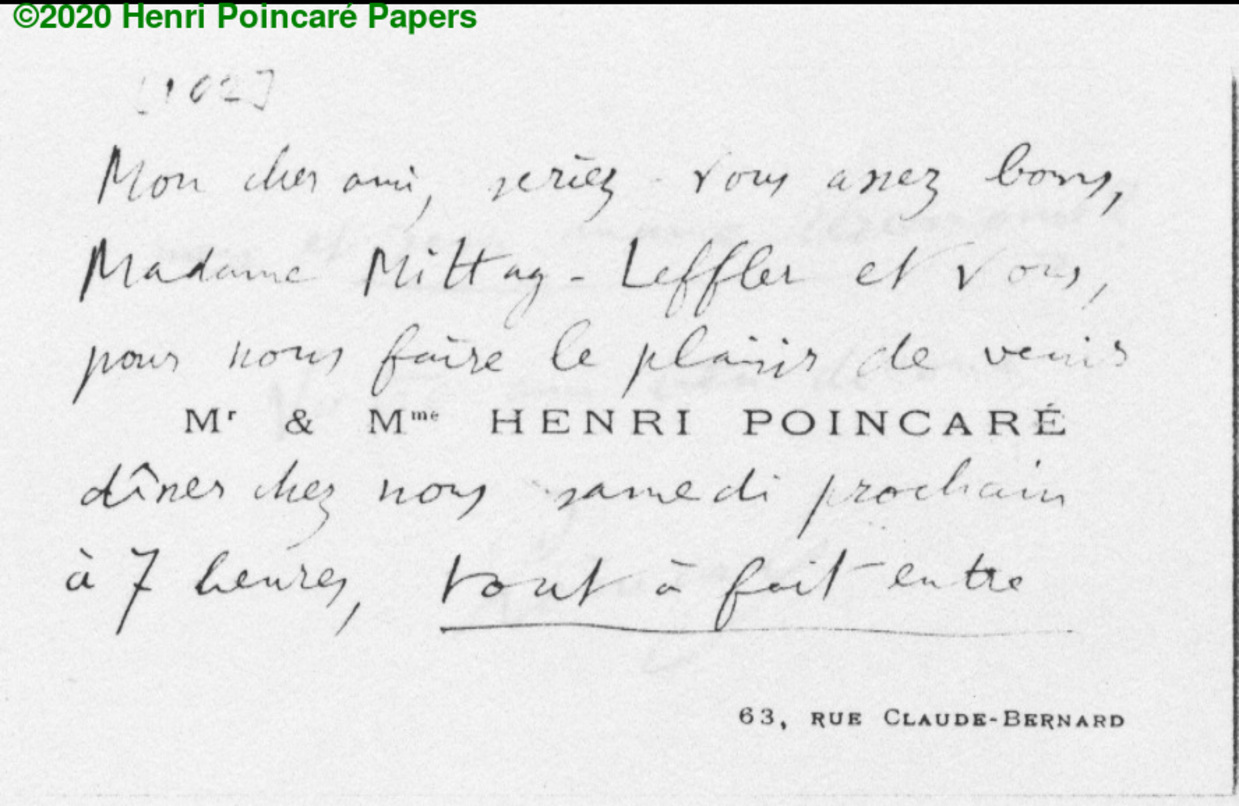 ©2020 Henri Poincaré Papers
[102]
Mon cher ami, seriez-vous assez bons,
Madame Mittag-Leffler et vous,
pour nous faire le plaisir de venir
Mr & Mme HENRI POINCARÉ
dîner chez nous samedi prochain
à 7 heures, tout à fait entre
63, RUE CLAUDE-BERNARD